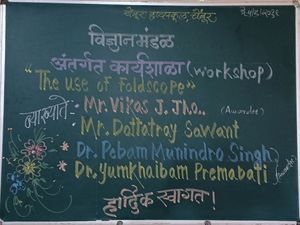 चेंबूर हायस्कूल, चेंबूर
विज्ञानमंडळ
अंतर्गत कार्यशाळा (workshop)
"The use of Foldscope"
व्याख्याते :- Mr. Vikas J. Jho.. (Awardee)
Mr. Dattatray Sawant
Dr. Pebam Munindro Singh
Dr. Yumkhaibam Premabati
हार्दिक स्वागत!